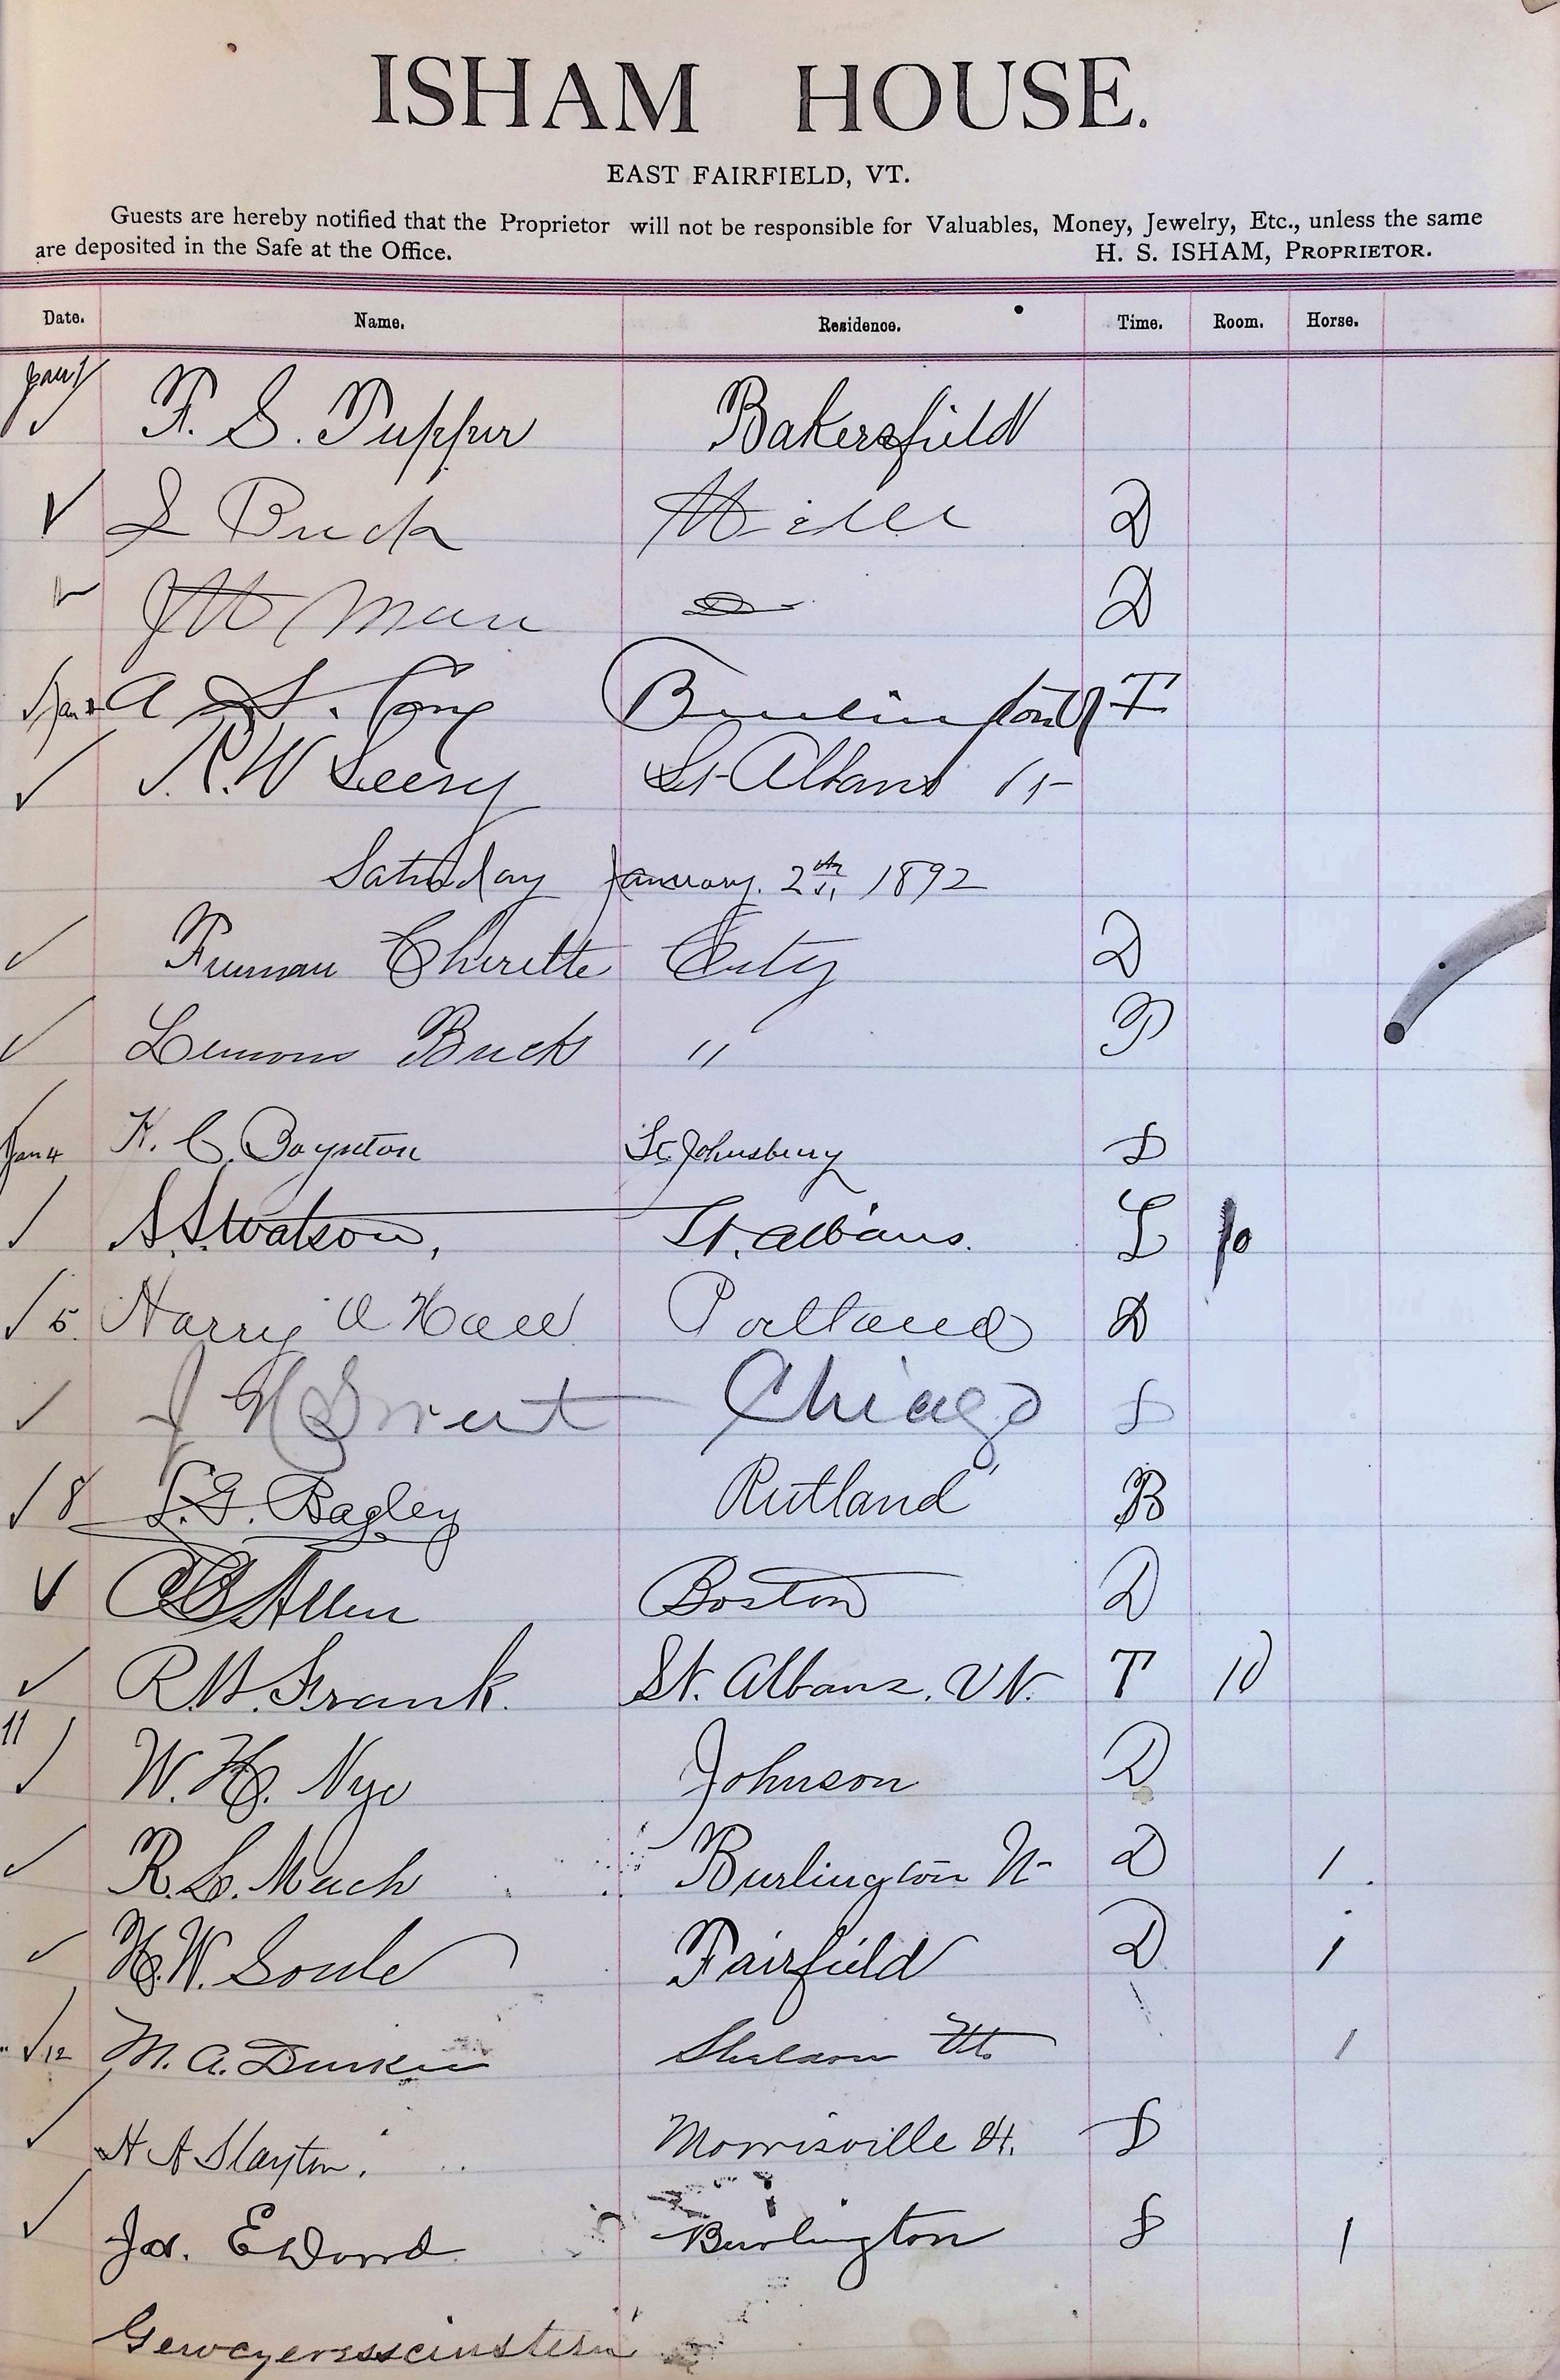 ISHAM HOUSE.
EAST FAIRFIELD, VT.
Guests are hereby notified that the Proprietor will not be responsible for Valuables, Money, Jewelry, Etc., unless the same
are deposited in the Safe at the Office. H. S. ISHAM, PROPRIETOR.
Date. Name. Residence. Time. Room. Horse.
Jan 1
F. S. Tupper Bakersfield
Buck D
Man D
Jan A S. Burlington T
R. W. St Albans
Saturday January. 2th 1892
Truman Cherette City D
Buck " P
Jan 4 H. C. Boynton St. Johnsbury D
S. S. Watson, St. Albans. L 10
5. Harry A Hall Portland D
J Chicago S
8 Bagley Rutland B
Allen Boston D
Frank. St. Albans, Vt. T 10
11
W. H. Nye Johnson D
R. L. Burlington Vt D 1
H. W. Soule Fairfield D 1
12 M. A. Durkee Sheldon Vt. 1
H A Slayton. Morrisville Vt. S
Burlington S 1